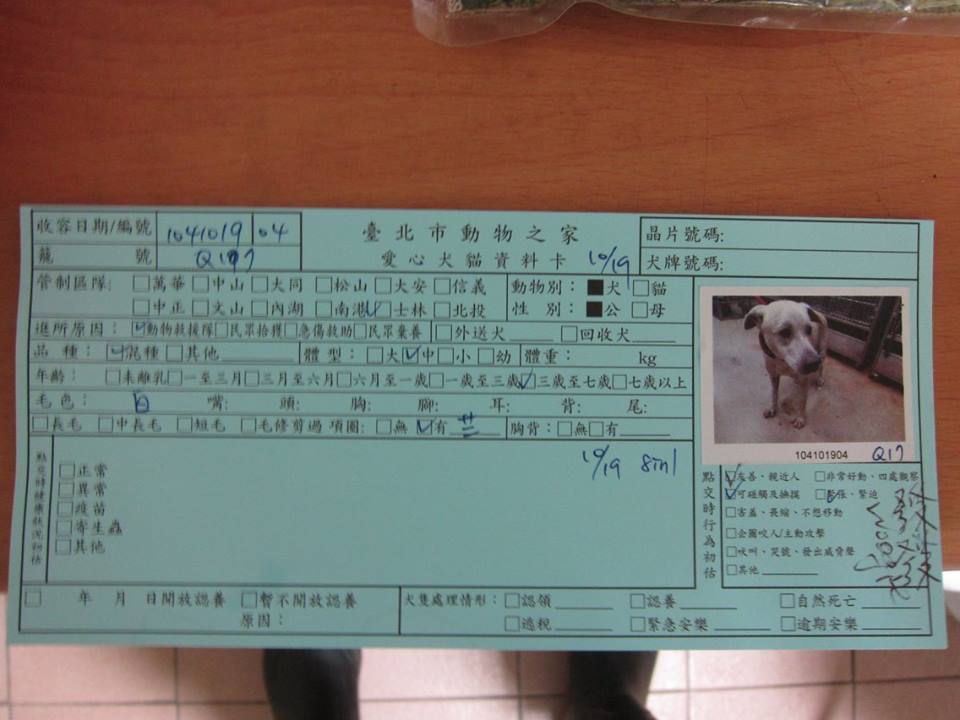 收容日期/編號 1041019 04
臺北市動物之家
晶片號碼:
籠號 Q17
愛心犬貓資料卡 10/19
犬牌號碼:
管制區隊: □萬華□中山□大同□松山□大安□信義
動物別: ■犬□貓
□中正□文山□內湖□南港☑士林□北投
性別: ■公□母
進所原因: ☑動物救援隊□民眾拾獲□急傷救助□民眾棄養□外送犬 □回收犬
品種: ☑混種□其他 體型: □大☑中□小□幼 體重: kg
年齡: □未離乳□一至三月□三月至六月□六月至一歲□一歲至三歲☑三歲至七歲□七歲以上
毛色: 白 嘴: 頭: 胸: 腳: 耳: 背: 尾:
□長毛 □中長毛 □短毛 □毛修剪過 項圈: □無☑有 胸背: □無□有
104101904 Q17
10/19
點交時健康狀況初估
□正常
□異常
□疫苗
□寄生蟲
□其他
點交時行為初估
☑友善、親近人 □非常好動、四處觀察
☑可碰觸及撫摸 ☑緊張、緊迫
□害羞、畏縮、不想移動
□企圖咬人/主動攻擊
□吠叫、哭號、發出威脅聲
□其他
□ 年 月 日開放認養 □暫不開放認養
原因:
犬隻處理情形: □認領 □認養 □自然死亡
□逃稅 □緊急安樂 □逾期安樂